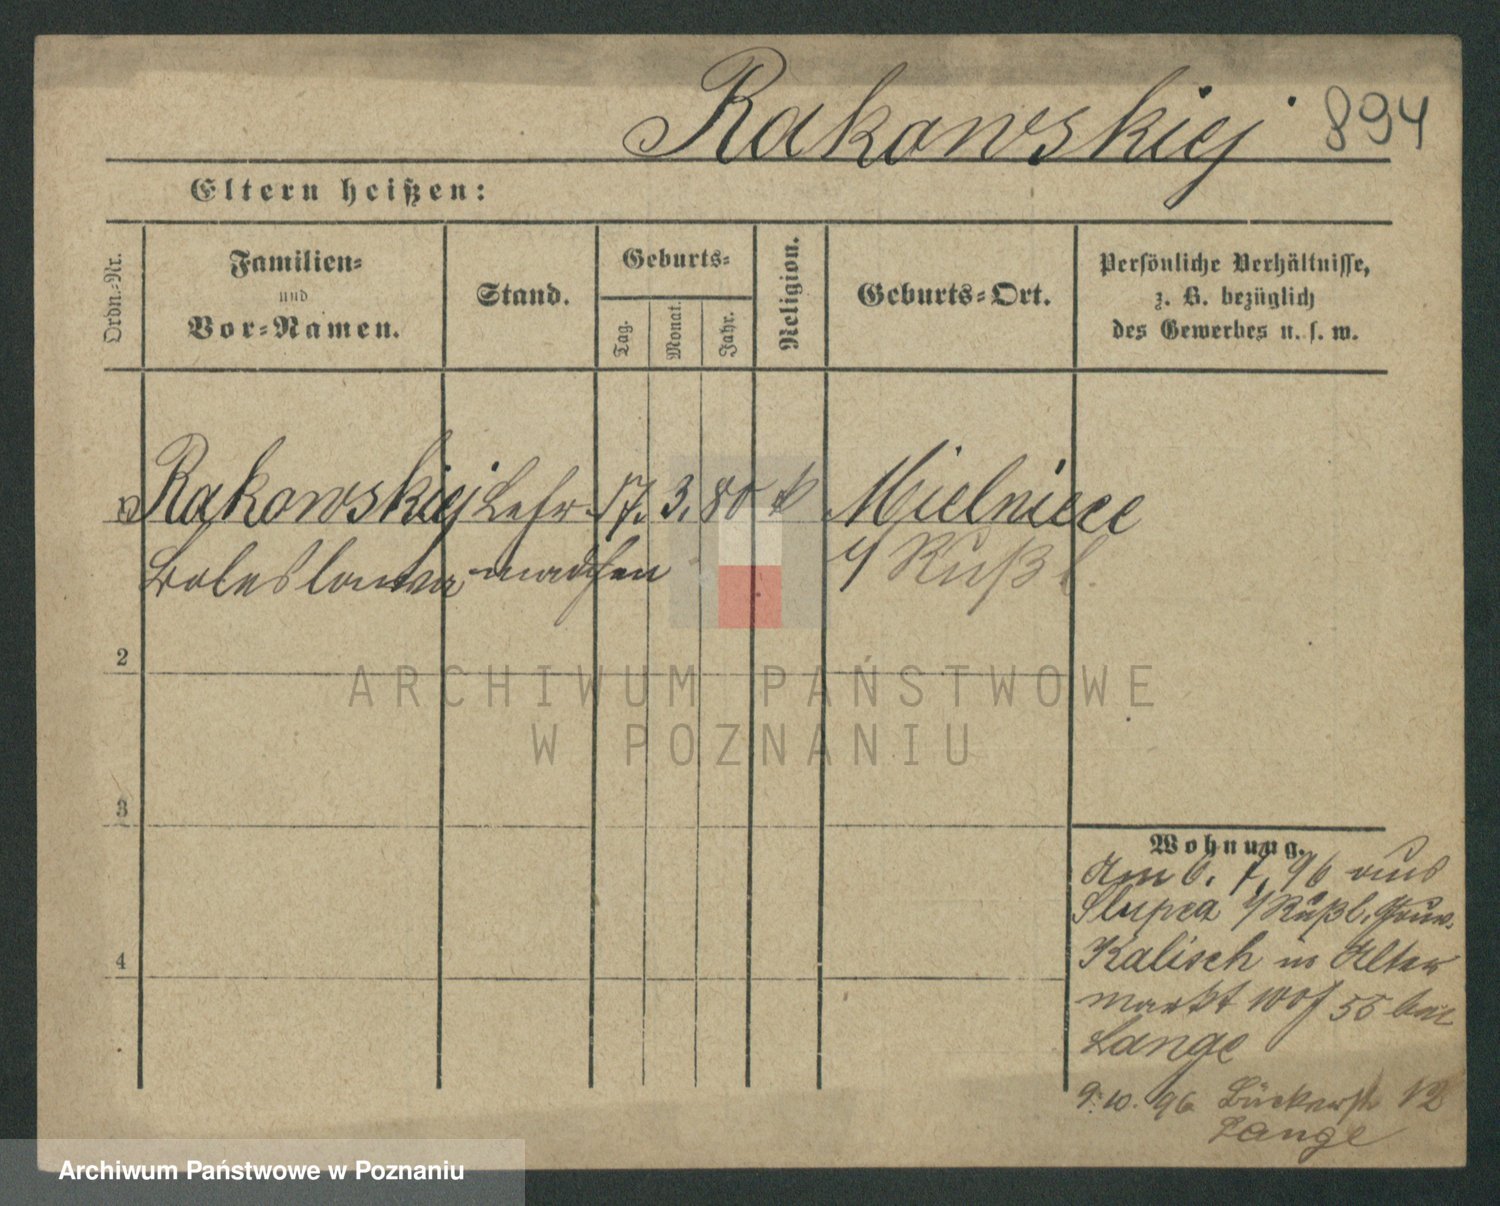 Rakowskiej 894
Eltern heißen:
Ordn.-Nr.
Familien-
und
Vor-Namen.
Stand.
Geburts-
Tag.
Monat.
Jahr.
Religion.
Geburts-Ort.
Persönliche Verhältnisse,
z. B. bezüglich
des Gewerbes u. s. w.
1 Rakowskiej Lehr- 17. 3. 80 k Mielniece
Boleslawa mädchen i/ Rußl.
2
3
4
Wohnung.
Am 6. 7. 96 aus
Slupca i/Rußl. Gouv.
Kalisch in Alter
markt 55 bei
Lange
9. 10. 96 12
Lange
ARCHIWUM PAŃSTWOWE
W POZNANIU
Archiwum Państwowe w Poznaniu